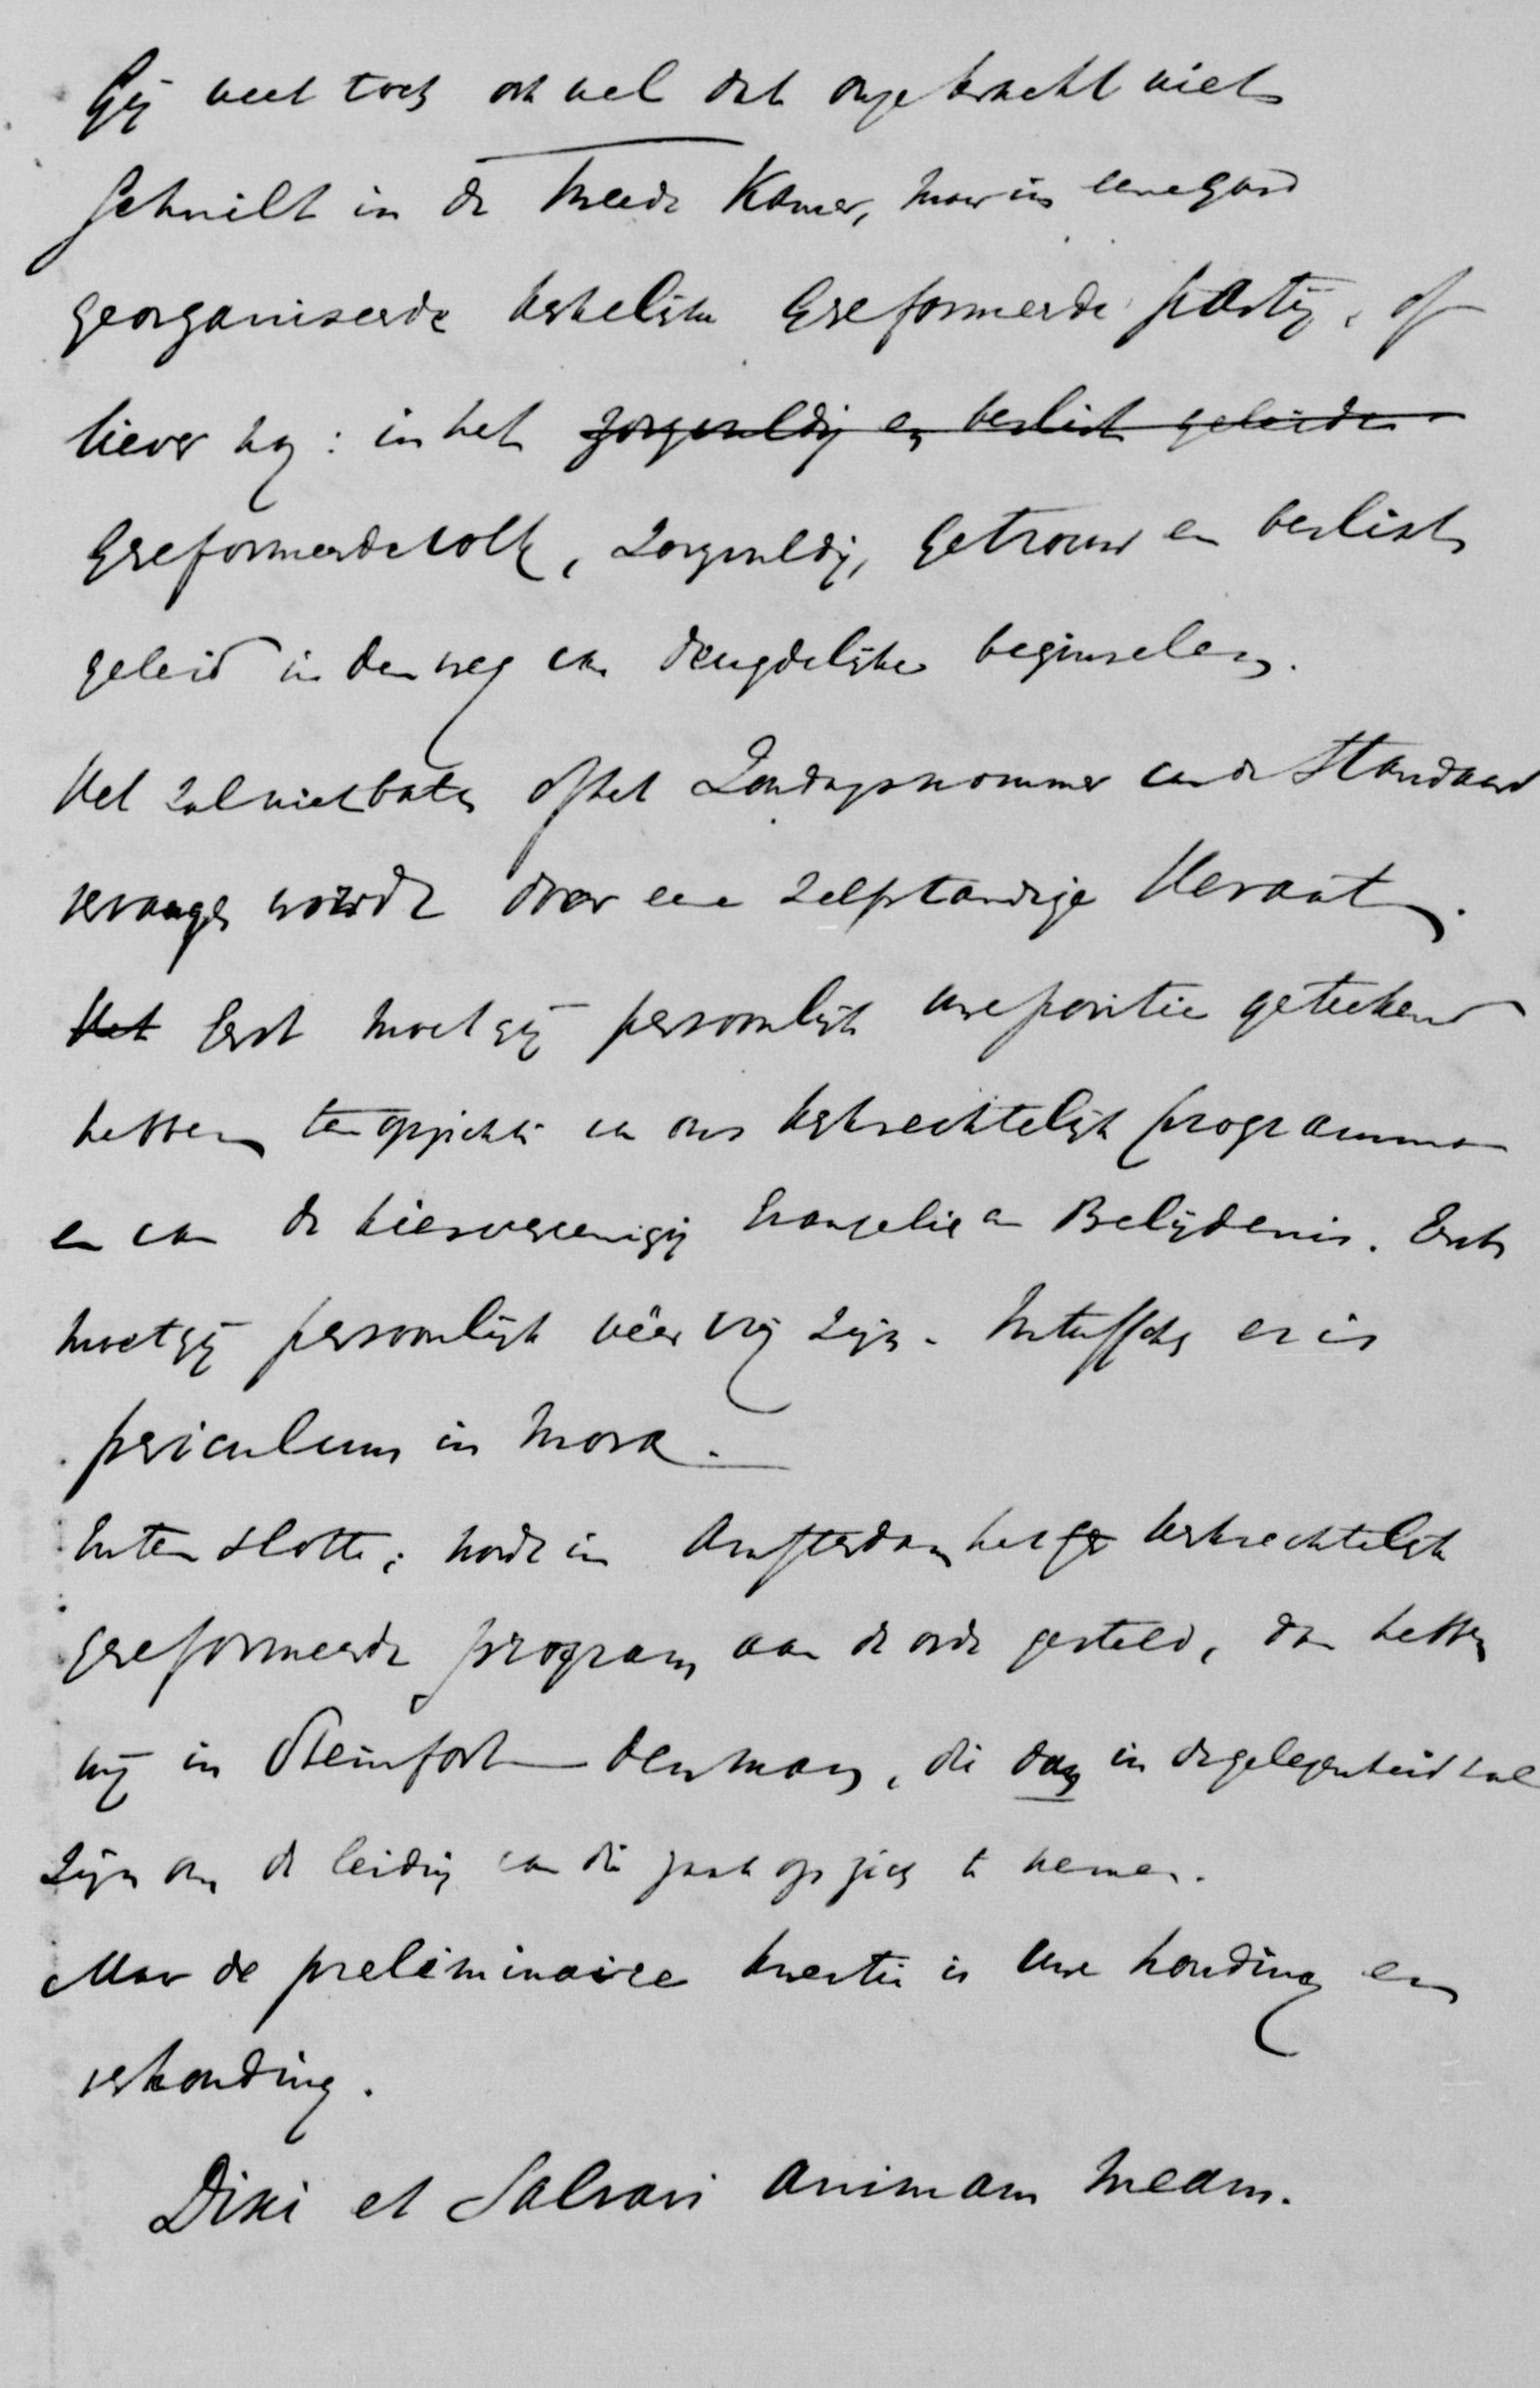 Gij weet toch ook wel dat onze kracht niet
schuilt in de Tweede Kamer, maar in eene goed
georganiseerde kerkelijke Gereformeerde partij, of
liever nog: in het zorgvuldig en beslist geleide
Gereformeerde volk, zorgvuldig, getrouw en beslist
geleid in den weg van deugdelijke beginselen.
Het zal niet baten of het Zondagsnommer van de Standaard
vervangen wordt door eene zelfstandige Heraut.
Het Eerst moet gij persoonlijk uwe positie geteekend
hebben ten opzichte van ons kerkrechtelijk programma
en van de kiesvereeniging Evangelie en Belijdenis. Eerst
moet gij persoonlijk weer vrij zijn. Intusschen er is
periculum in mora.
En ten slotte: wordt in Amsterdam het ge kerkrechtelijk
gereformeerde program aan de orde gesteld, dan hebben
wij in Steinfort den man, die dan in de gelegenheid zal
zijn om de leiding van die zaak op zich te nemen.
Maar de preliminaire kwestie is uwe houding en
verhouding.
Dixi et Salvavi animam meam.